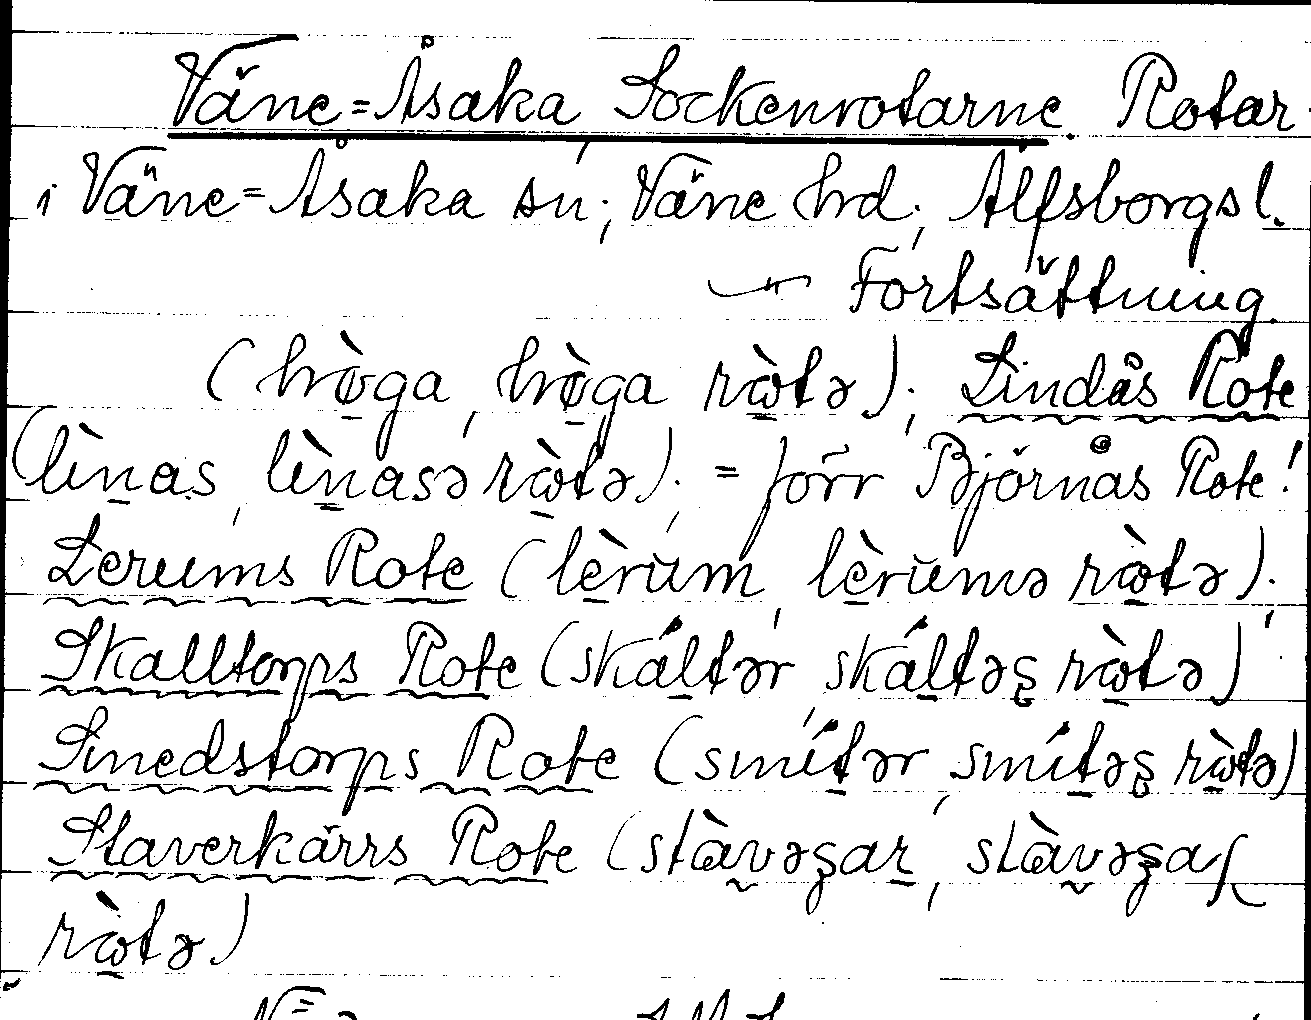 Väne=Åsaka Sockenrotarne. Rotar
i Väne=Åsaka sn, Väne hrd, Älfsborgs l.
Fortsättning.
(hrö̀ga, hrö̀ga rò̱tə); Lindås Rote
(lìnas, lìnasə rò̱tə); = förr Björnås Rote!
Lerums Rote (lèrum, lèrumə rò̱tə);
Skalltorps Rote (skáltər, skáltəş rò̱tə)
Smedstorps Rote (smítər, smítəş rò̱tə)
Staverkärrs Rote (stàvəşar, stàvəşa
rò̱tə)